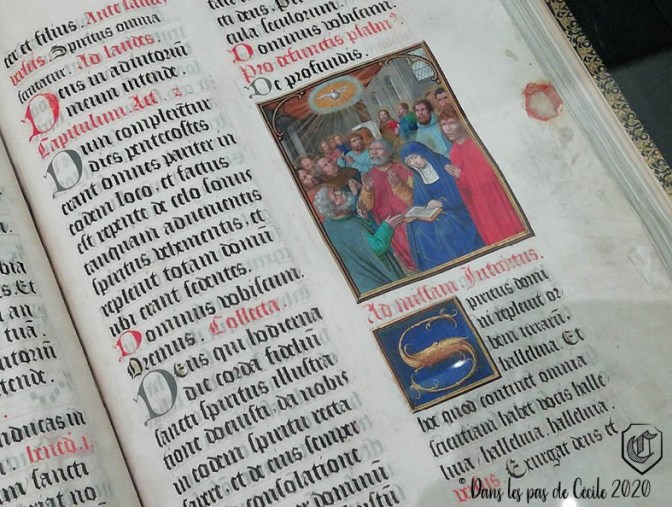 et et filius. Ante laud
vesp̄s Spiritus omnia.
Ad laudes
Deus in adiutoriū
meum intende.
Capitulum. Act. 2
Dum complerētur
dies pentecostes
erant omnes pariter in
eodem loco, et factus
est repente de celo sonus
tanquam aduenientis
spiritus vehementis, et
repleuit totam domū
ubi erant sedentes.
Dominus vobiscum.
Oremus. Collecta.
Deus qui hodierna
die corda fideliū
sancti spiritus illustra
tione docuisti, da nobis
in eodem spiritu recta
sapere, et de eius semper
consolatione
dominū
sancti
cti deus. Per
cula seculorum.
Dominus vobiscum.
Pro defunctis psalm⁹.
De profundis.
Ad missam. Introitus.
Spiritus domi
ni repleuit or
bem terrarū,
halleluia. Et
hoc quod continet omnia
scientiam habet vocis halle
luia, halleluia, halleluia.
Exurgat deus et
s. Et
tuā.
tende.
inducas in
bened. 1.
sancti
C
©Dans les pas de Cécile 2020